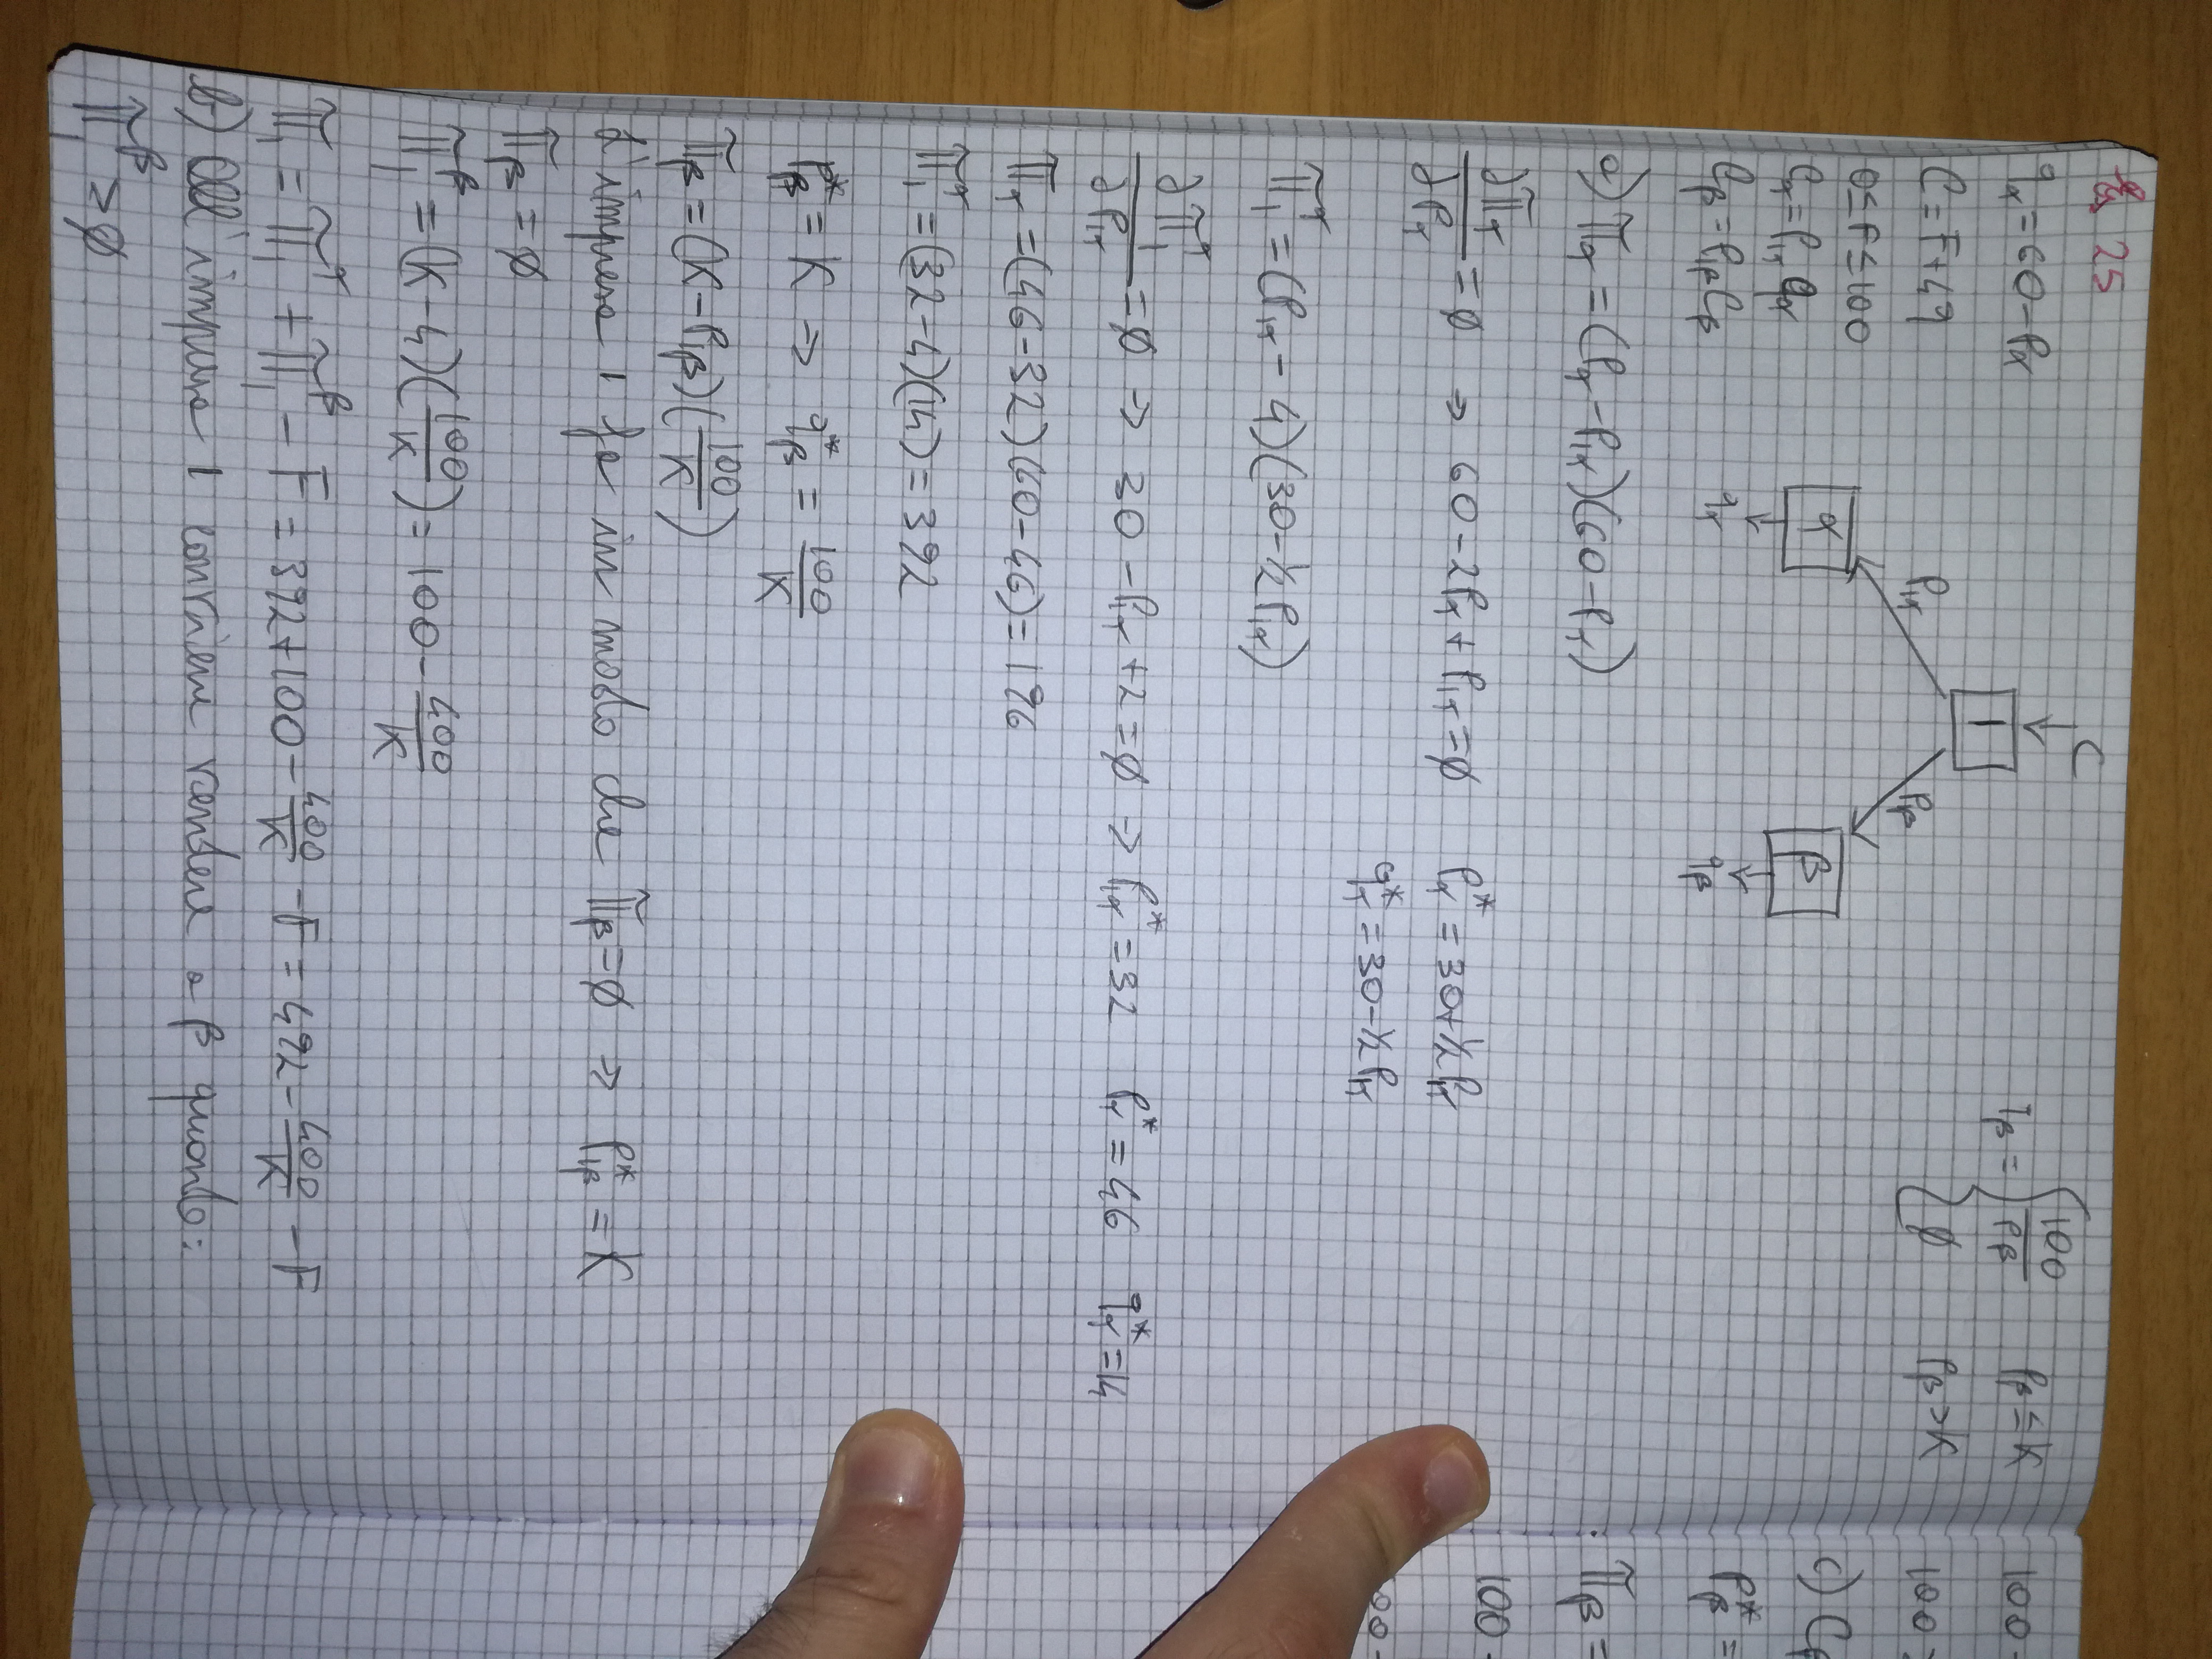 Es 25
C
1
P1α P1β
α β
qα qβ
qα = 60 - Pα
C = F + 4q
0 ≤ F ≤ 100
Cα = P1α qα
Cβ = P1β Cβ
qβ = { 100/Pβ Pβ ≤ K
∅ Pβ > K
a) Πα = (Pα - P1α)(60 - Pα)
∂Πα/∂Pα = ∅ → 60 - 2Pα + P1α = ∅ Pα* = 30 + ½ P1α
qα* = 30 - ½ P1α
Π1^α = (P1α - 4)(30 - ½ P1α)
∂Π1^α/∂P1α = ∅ → 30 - P1α + 2 = ∅ → P1α* = 32 Pα* = 46 qα* = 14
Πα = (46 - 32)(60 - 46) = 196
Π1^α = (32 - 4)(14) = 392
Pβ* = K ⇒ qβ* = 100/K
Πβ = (K - P1β)(100/K)
L'impresa 1 fa in modo che Πβ = ∅ ⇒ P1β* = K
Πβ = ∅
Π1^β = (K - 4)(100/K) = 100 - 400/K
Π1 = Π1^α + Π1^β - F = 392 + 100 - 400/K - F = 492 - 400/K - F
b) All'impresa 1 conviene vendere a β quando:
Π1^β ≥ ∅
100 -
100 ≥
c) Cβ
Pβ* =
Πβ =
100 -